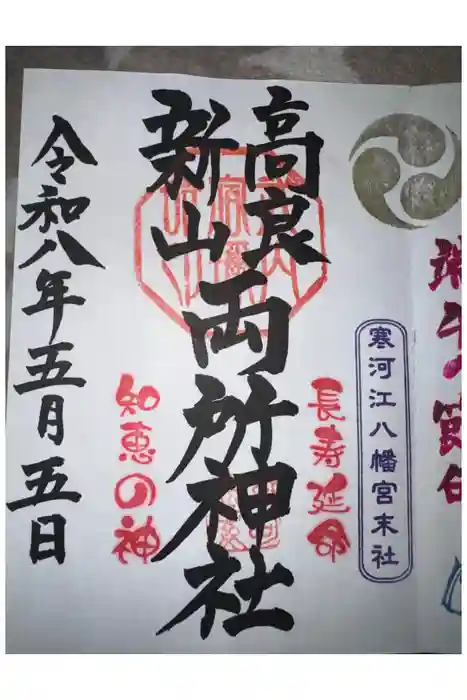 端午の節句
寒河江八幡宮末社
長寿延命
高良
新山
両所神社
知恵の神
令和八年五月五日